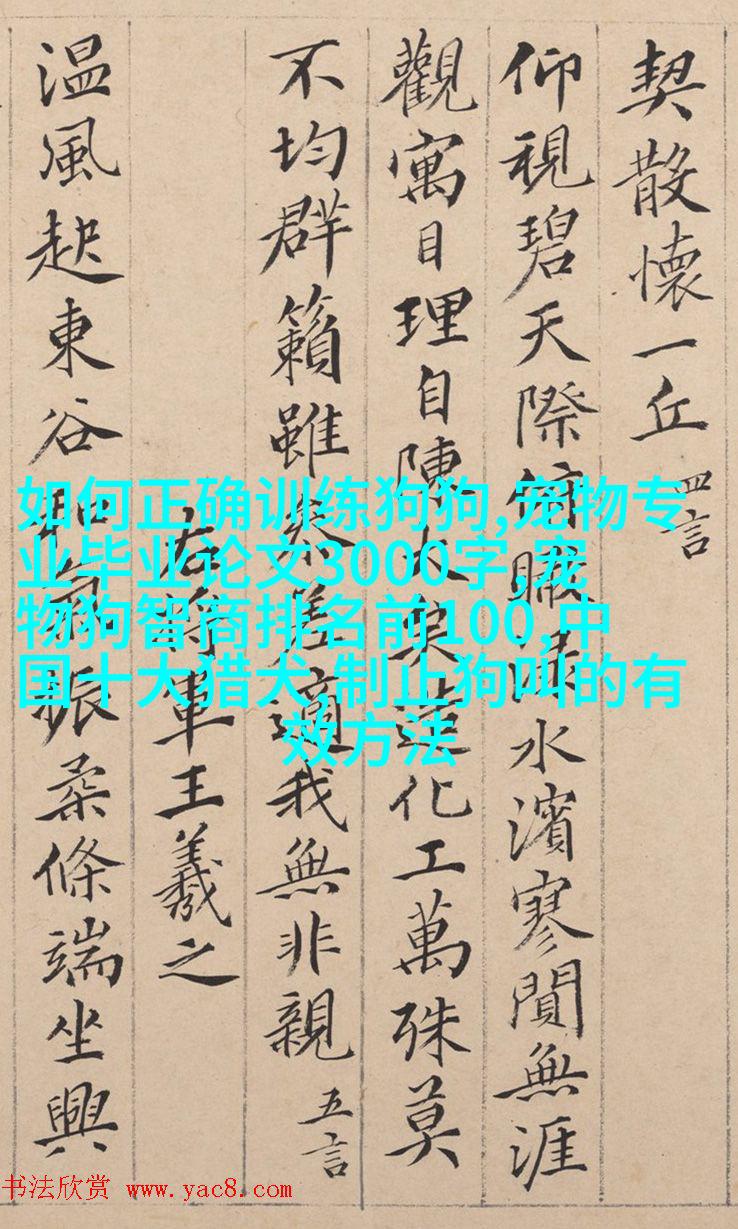 契散懷一丘 四言
仰視碧天際俯瞰淥水濱寥閴無涯
觀寓目理自陳大矣造化工萬殊莫
不均群籟雖叅差適我無非親 五言
右將軍王羲之
温風起東谷和氣振柔條端坐興
如何正确训练狗狗,宠物专
业毕业论文3000字,宠
物狗智商排名前100,中
国十大猎犬,制止狗叫的有
效方法
书法欣赏 www.yac8.com